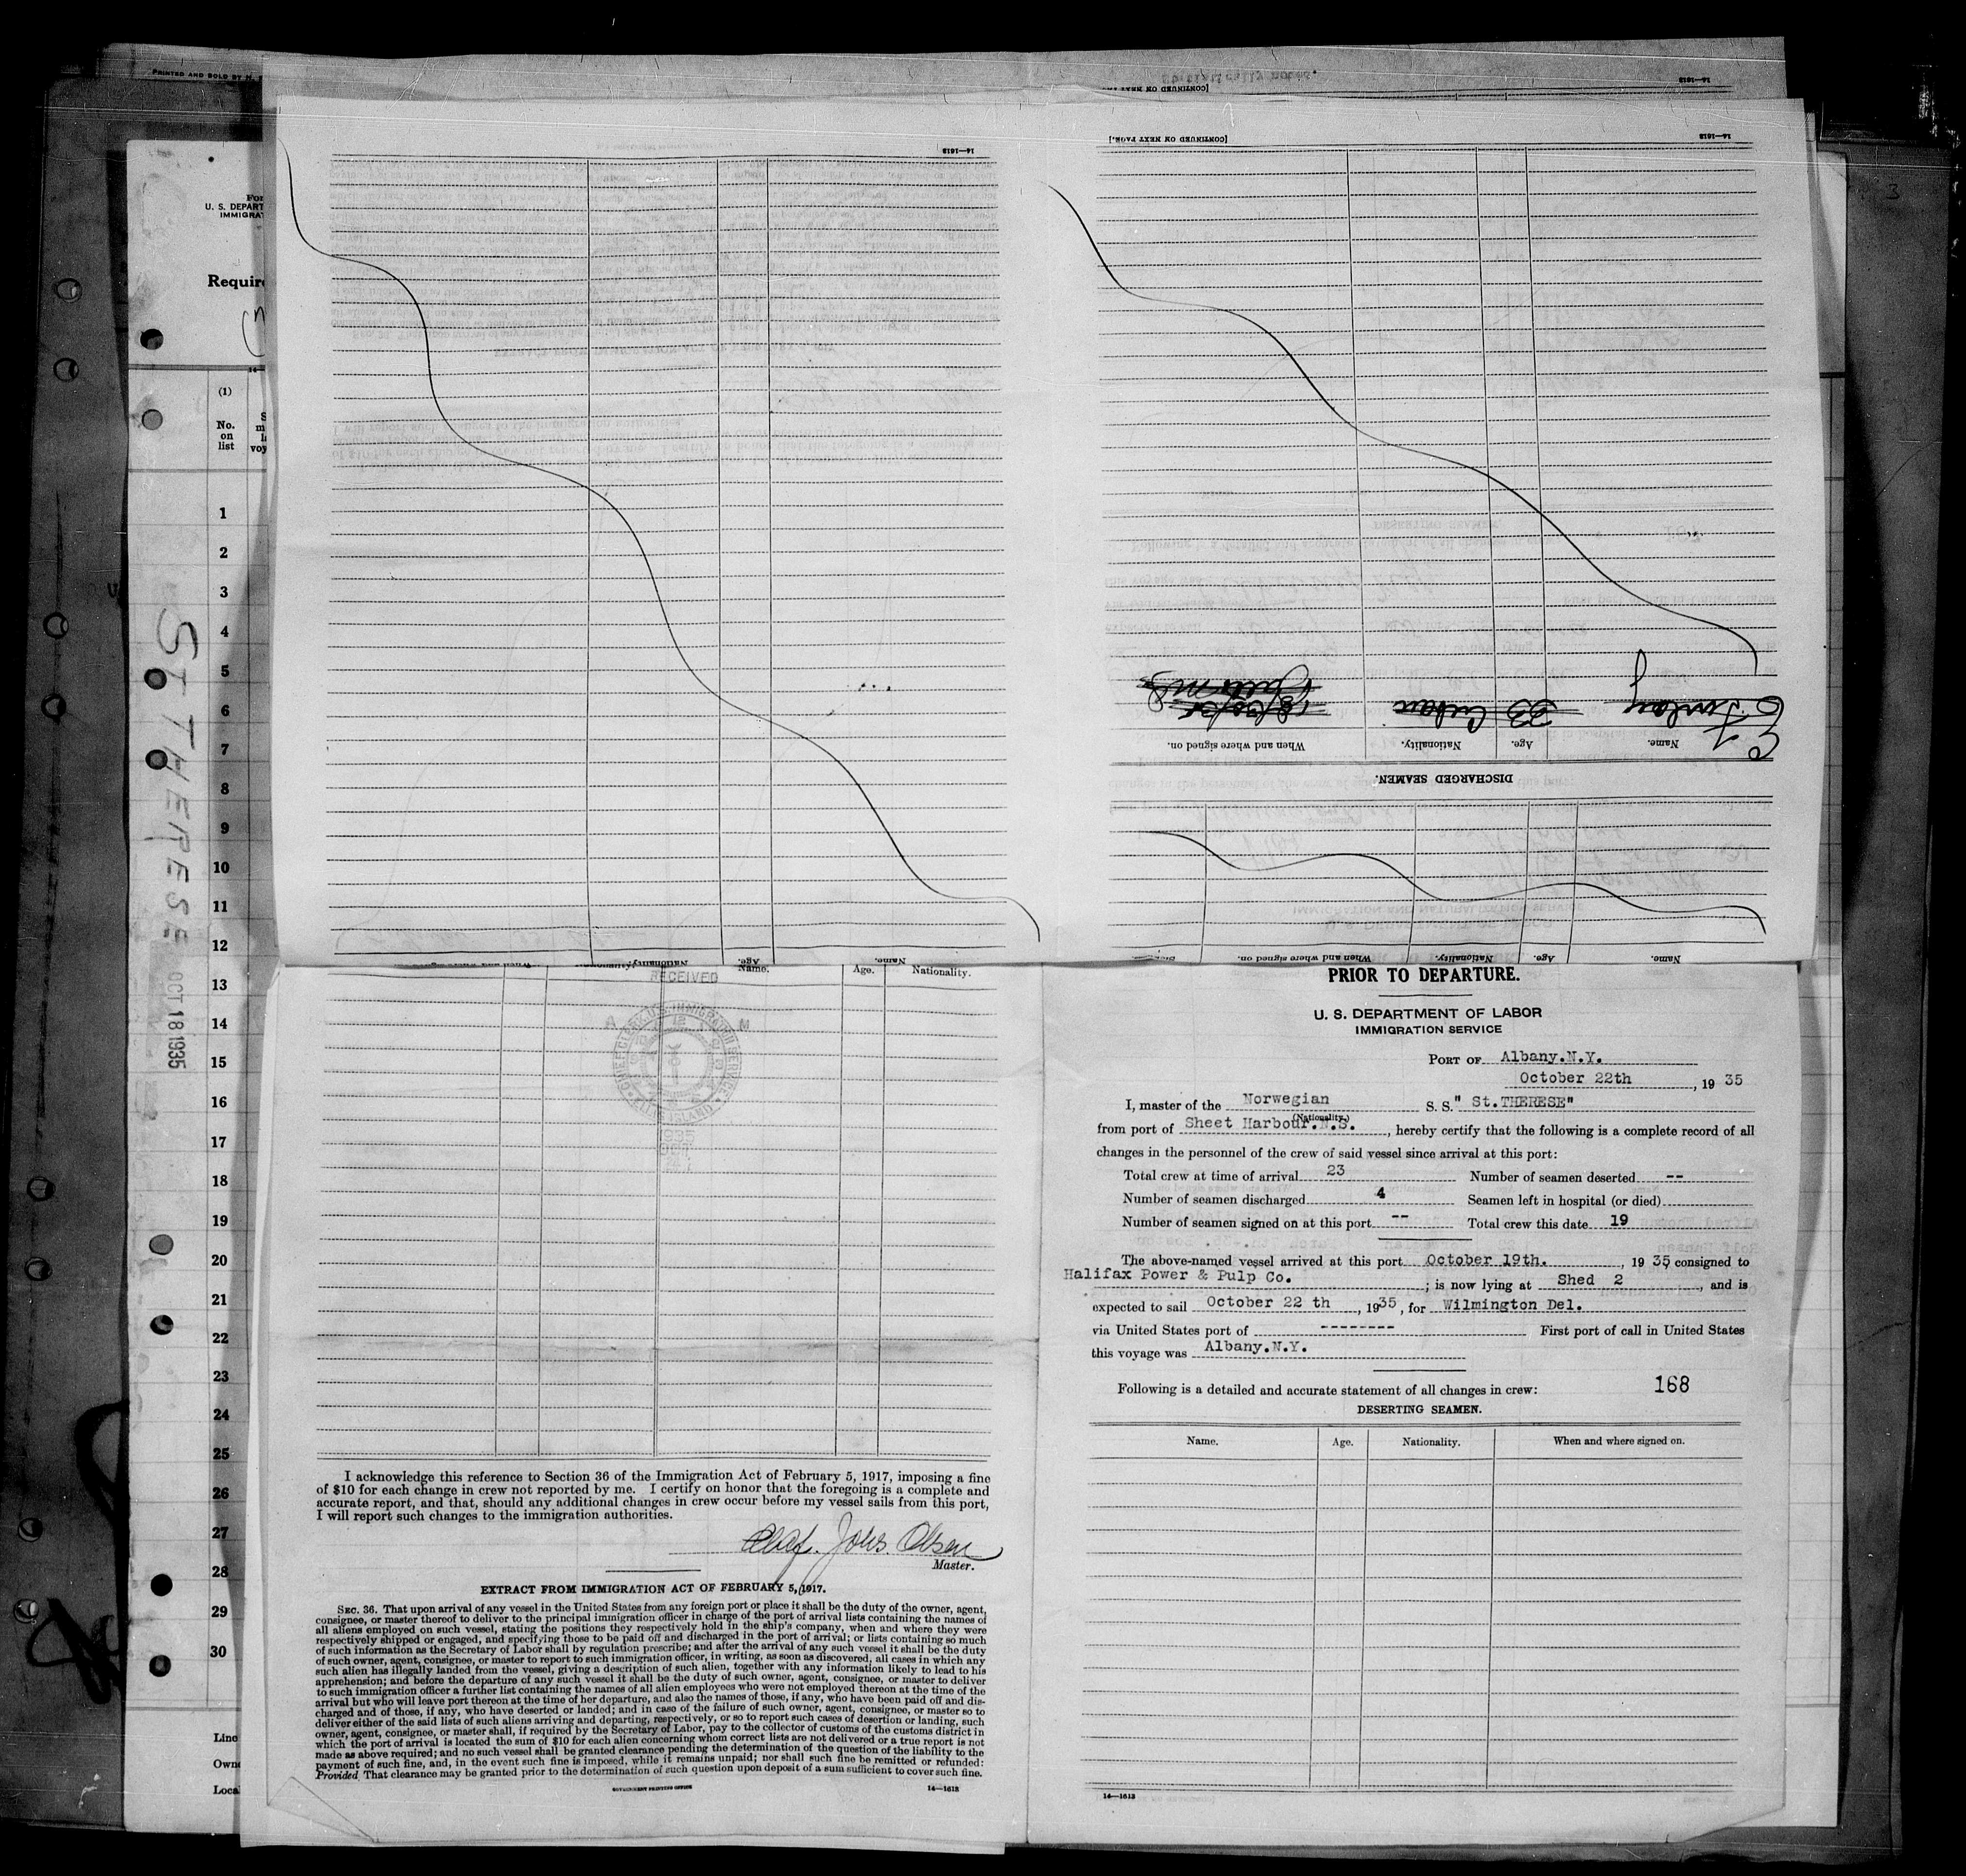 PRINTED AND SOLD BY
[CONTINUED ON NEXT PAGE.]
14—1613
For
U. S. DEPART
IMMIGRAT
Require
(1)
No.
on
list
1
2
3
4
5
6
7
8
9
10
11
12
13
14
15
16
17
18
19
20
21
22
23
24
25
26
27
28
29
30
Line
Owne
Loca
ST THERESE
OCT 18 1935
14—1613
[CONTINUED ON NEXT PAGE.]
14—1613
DISCHARGED SEAMEN.
Name. Age. Nationality. When and where signed on.
Finlay 33 Cuban
Name. Age. Nationality. When and where signed on.
Name. Age. Nationality.
RECEIVED
Name. Age. Nationality.
I acknowledge this reference to Section 36 of the Immigration Act of February 5, 1917, imposing a fine
of $10 for each change in crew not reported by me. I certify on honor that the foregoing is a complete and
accurate report, and that, should any additional changes in crew occur before my vessel sails from this port,
I will report such changes to the immigration authorities.
Olaf. Johs. Olsen
Master.
EXTRACT FROM IMMIGRATION ACT OF FEBRUARY 5, 1917.
SEC. 36. That upon arrival of any vessel in the United States from any foreign port or place it shall be the duty of the owner, agent,
consignee, or master thereof to deliver to the principal immigration officer in charge of the port of arrival lists containing the names of
all aliens employed on such vessel, stating the positions they respectively hold in the ship's company, when and where they were
respectively shipped or engaged, and specifying those to be paid off and discharged in the port of arrival; or lists containing so much
of such information as the Secretary of Labor shall by regulation prescribe; and after the arrival of any such vessel it shall be the duty
of such owner, agent, consignee, or master to report to such immigration officer, in writing, as soon as discovered, all cases in which any
such alien has illegally landed from the vessel, giving a description of such alien, together with any information likely to lead to his
apprehension; and before the departure of any such vessel it shall be the duty of such owner, agent, consignee, or master to deliver
to such immigration officer a further list containing the names of all alien employees who were not employed thereon at the time of the
arrival but who will leave port thereon at the time of her departure, and also the names of those, if any, who have been paid off and dis-
charged and of those, if any, who have deserted or landed; and in case of the failure of such owner, agent, consignee, or master so to
deliver either of the said lists of such aliens arriving and departing, respectively, or so to report such cases of desertion or landing, such
owner, agent, consignee, or master shall, if required by the Secretary of Labor, pay to the collector of customs of the customs district in
which the port of arrival is located the sum of $10 for each alien concerning whom correct lists are not delivered or a true report is not
made as above required; and no such vessel shall be granted clearance pending the determination of the question of the liability to the
payment of such fine, and, in the event such fine is imposed, while it remains unpaid; nor shall such fine be remitted or refunded:
Provided That clearance may be granted prior to the determination of such question upon deposit of a sum sufficient to cover such fine.
GOVERNMENT PRINTING OFFICE
14—1613
PRIOR TO DEPARTURE.
U. S. DEPARTMENT OF LABOR
IMMIGRATION SERVICE
PORT OF Albany.N.Y.
October 22th, 19 35
I, master of the Norwegian S. S." St.THERESE"
(Nationality.)
from port of Sheet Harbour.N.S., hereby certify that the following is a complete record of all
changes in the personnel of the crew of said vessel since arrival at this port:
Total crew at time of arrival 23 Number of seamen deserted --
Number of seamen discharged 4 Seamen left in hospital (or died)
Number of seamen signed on at this port -- Total crew this date 19
The above-named vessel arrived at this port October 19th., 19 35, consigned to
Halifax Power & Pulp Co.; is now lying at Shed 2, and is
expected to sail October 22 th, 1935, for Wilmington Del.
via United States port of -------- First port of call in United States
this voyage was Albany.N.Y.
Following is a detailed and accurate statement of all changes in crew: 168
DESERTING SEAMEN.
Name. Age. Nationality. When and where signed on.
14—1613